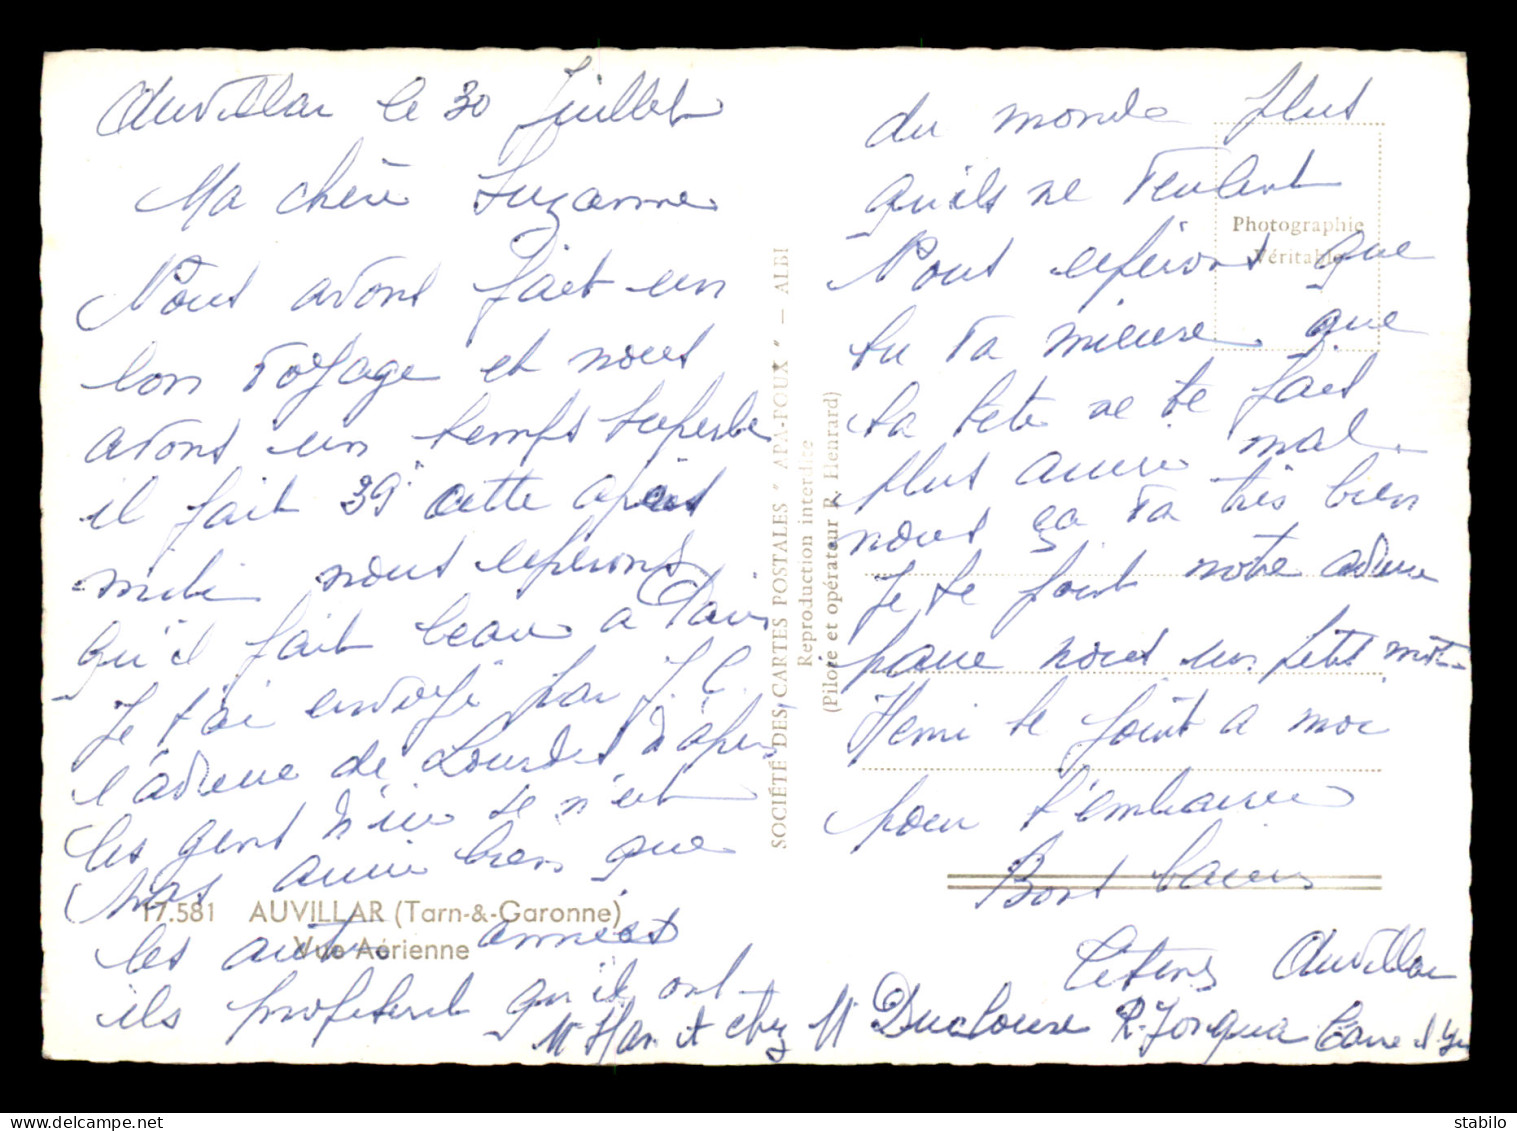 Auvillar le 30 Juillet
Ma chère Suzanne
Nous avons fait un
bon voyage et nous
avons un temps superbe
il fait 39° cette après
midi nous esperons
qu'il fait beau a Paris
Je t'ai envoyé par J. C.
l'adresse de Lourdes d'après
les gens d'ici se n'est
pas aussi bien que
les autres années
ils profitent qu'il ont
du monde plus
qu'ils ne veulent
Nous esperons que
tu va mieux que
ta tete ne te fais
plus aussi mal.
nous ça va très bien
Je te joint notre adresse
passe nous un petit mot
Henri te joint a moi
pour t'embrasser
Bons baisers
Auvillar
Mr chez Mr Ducloure R. Jorqua
17.581 AUVILLAR (Tarn-&-Garonne)
Vue Aérienne
SOCIÉTÉ DES CARTES POSTALES " APA-POUX " — ALBI
Reproduction interdite
(Pilote et opérateur R. Henrard)
Photographie
Véritable
stabilo